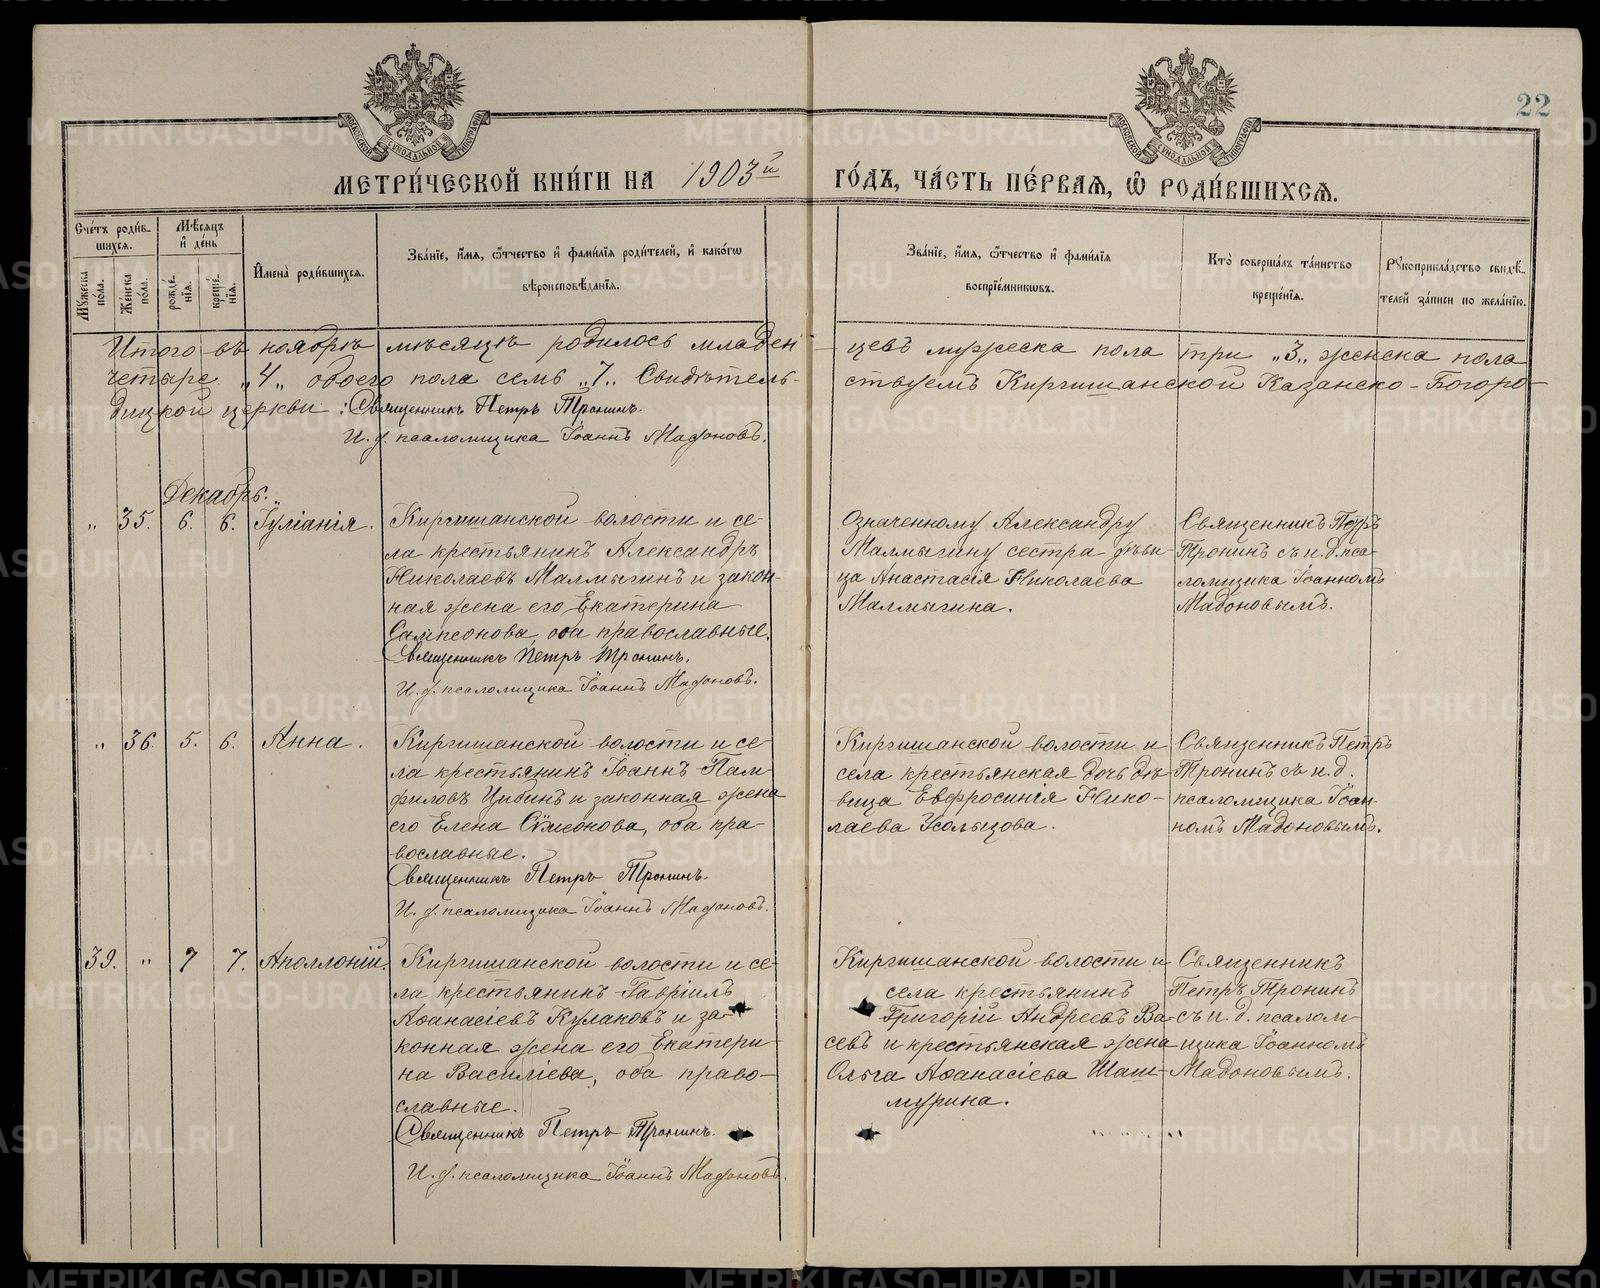 22
МЕТРИ́ЧЕСКОЙ КНИ́ГИ НА 1903й ГО́ДЪ, ЧА́СТЬ ПЕ́РВАѦ, Ѽ РОДИ́ВШИХСѦ.
Сче́тъ роди́вшихсѧ.
Мѣ́сѧцъ и҆ де́нь
Мꙋ́жеска по́ла.
Же́нска по́ла.
рожде́нїѧ.
креще́нїѧ.
И҆мена̀ роди́вшихсѧ.
Зва́нїе, и҆́мѧ, ѻ҆́тчество и҆ фами́лїѧ роди́телей, и҆ како́гѡ
вѣроисповѣ́данїѧ.
Зва́нїе, и҆́мѧ, ѻ҆́тчество и҆ фами́лїѧ
воспрїе́мникѡвъ.
Кто̀ соверша́лъ та́инство
креще́нїѧ.
Рꙋкоприкла́дство свидѣ́-
телей за́писи по жела́нїю.
Итого въ ноябрѣ мѣсяцѣ родилось младен-цевъ мужеска пола три „3„ женска пола
четыре „4„ обоего пола семь „7„ Свидѣтель-ствуемъ Киргишанской Казанско-Богоро-
дицкой церкви: Священникъ Петръ Тронинъ.
И. д. псаломщика Іоаннъ Мадоновъ.
Декабрь.
„ 35. 6. 6. Іуліанія.
Киргишанской волости и се-
ла крестьянинъ Александръ
Николаевъ Малмыгинъ и закон-
ная жена его Екатерина
Сампсонова, оба православные.
Священникъ Петръ Тронинъ.
И. д. псаломщика Іоаннъ Мадоновъ.
Означенному Александру
Малмыгину сестра дѣви-
ца Анастасія Николаева
Малмыгина.
Священникъ Петръ
Тронинъ съ и. д. пса-
ломщика Іоанномъ
Мадоновымъ.
„ 36. 5. 6. Анна.
Киргишанской волости и се-
ла крестьянинъ Іоаннъ Пам-
филовъ Цибинъ и законная жена
его Елена Сѵмеонова, оба пра-
вославные.
Священникъ Петръ Тронинъ.
И. д. псаломщика Іоаннъ Мадоновъ.
Киргишанской волости и
села крестьянская дочь дѣ-
вица Евфросинія Нико-
лаева Усольцова.
Священникъ Петръ
Тронинъ съ и. д.
псаломщика Іоан-
номъ Мадоновымъ.
39. „ 7 7. Аполлоній.
Киргишанской волости и се-
ла крестьянинъ Гавріилъ
Аѳанасіевъ Кулаковъ и за-
конная жена его Екатери-
на Василіева, оба право-
славные.
Священникъ Петръ Тронинъ.
И. д. псаломщика Іоаннъ Мадоновъ.
Киргишанской волости и
села крестьянинъ
Григорій Андреевъ Ва-
севъ и крестьянская жена
Ольга Аѳанасіева Шаш-
мурина.
Священникъ
Петръ Тронинъ
съ и. д. псалом-
щика Іоанномъ
Мадоновымъ.